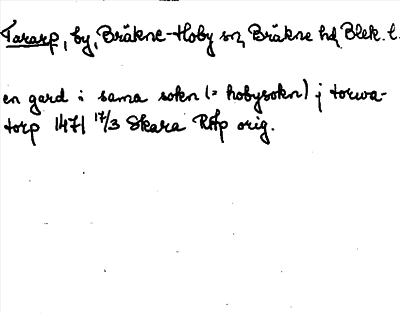 Tararp, by, Bräkne-Hoby sn, Bräkne hd, Blek. l.
en gard i sama sokn (= hobysokn) j torwa-
torp 1471 17/3 Skara RAp orig.